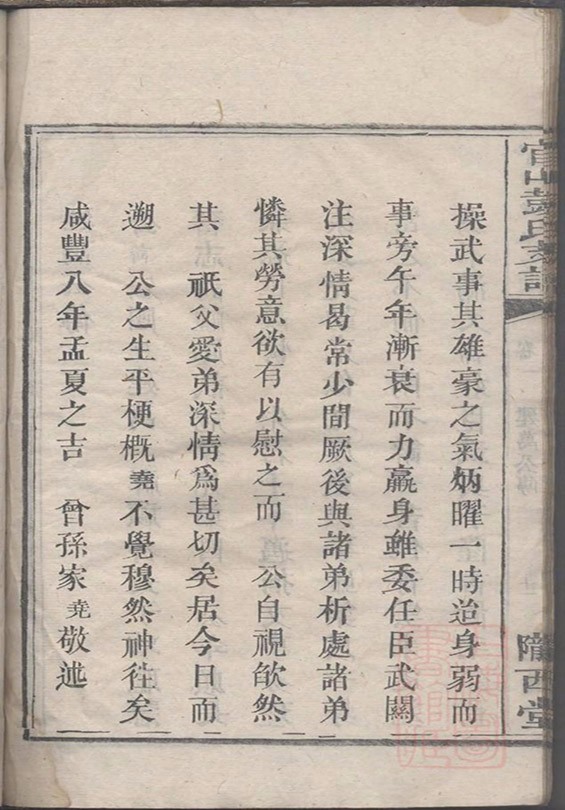 操武事其雄豪之氣炳曜一時迨身弱而
事旁午年漸衰而力羸身雖委任臣武關
注深情曷常少間厥後與諸弟析處諸弟
憐其勞意欲有以慰之而 公自視欿然
其 祇父愛弟深情爲甚切矣居今日而
遡 公之生平梗概堯不覺穆然神徃矣
咸豐八年孟夏之吉 曾孫家堯敬述
彭氏支譜
隴西堂